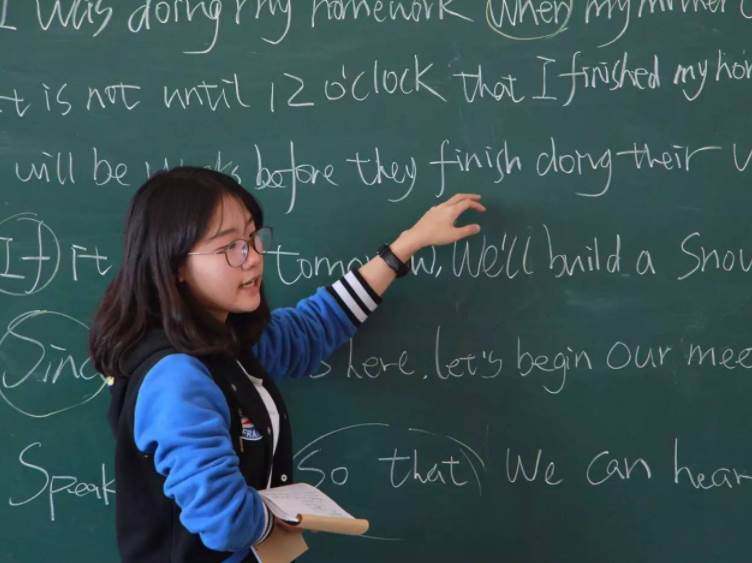 I was doing my homework when my mother
t is not until 12 o'clock that I finished my
will be before they finish doing their
If it tomorrow, We'll build a
here, let's begin our
Speak So that We can hear